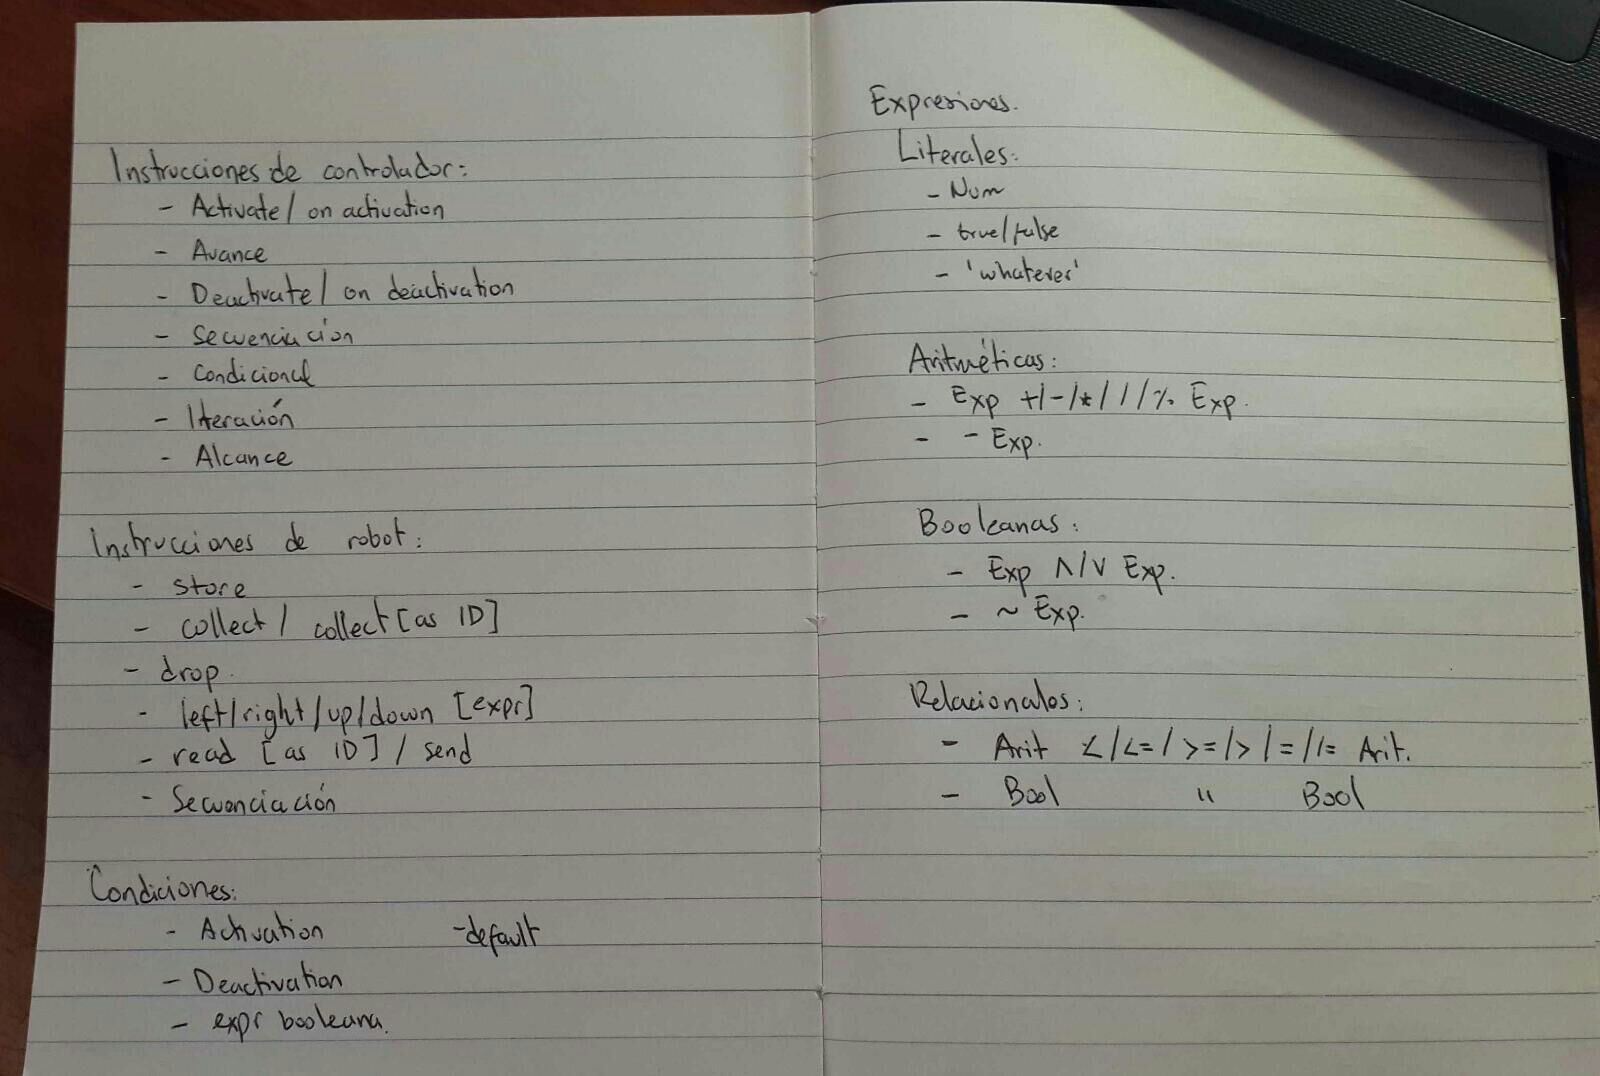 Instrucciones de controlador:
- Activate / on activation
- Avance
- Deactivate / on deactivation
- Secuenciación
- Condicional
- Iteración
- Alcance
Instrucciones de robot:
- store
- collect / collect [as ID]
- drop.
- left/right/up/down [expr]
- read [as ID] / send
- Secuenciación
Condiciones:
- Activation -default
- Deactivation
- expr booleana.
Expresiones.
Literales:
- Num
- true/false
- 'whatever'
Aritméticas:
- Exp +/-/*/ / /% Exp.
- - Exp.
Booleanas:
- Exp ∧/∨ Exp.
- ~ Exp.
Relacionales:
- Arit </<=/>=/>/=/ /= Arit.
- Bool " Bool